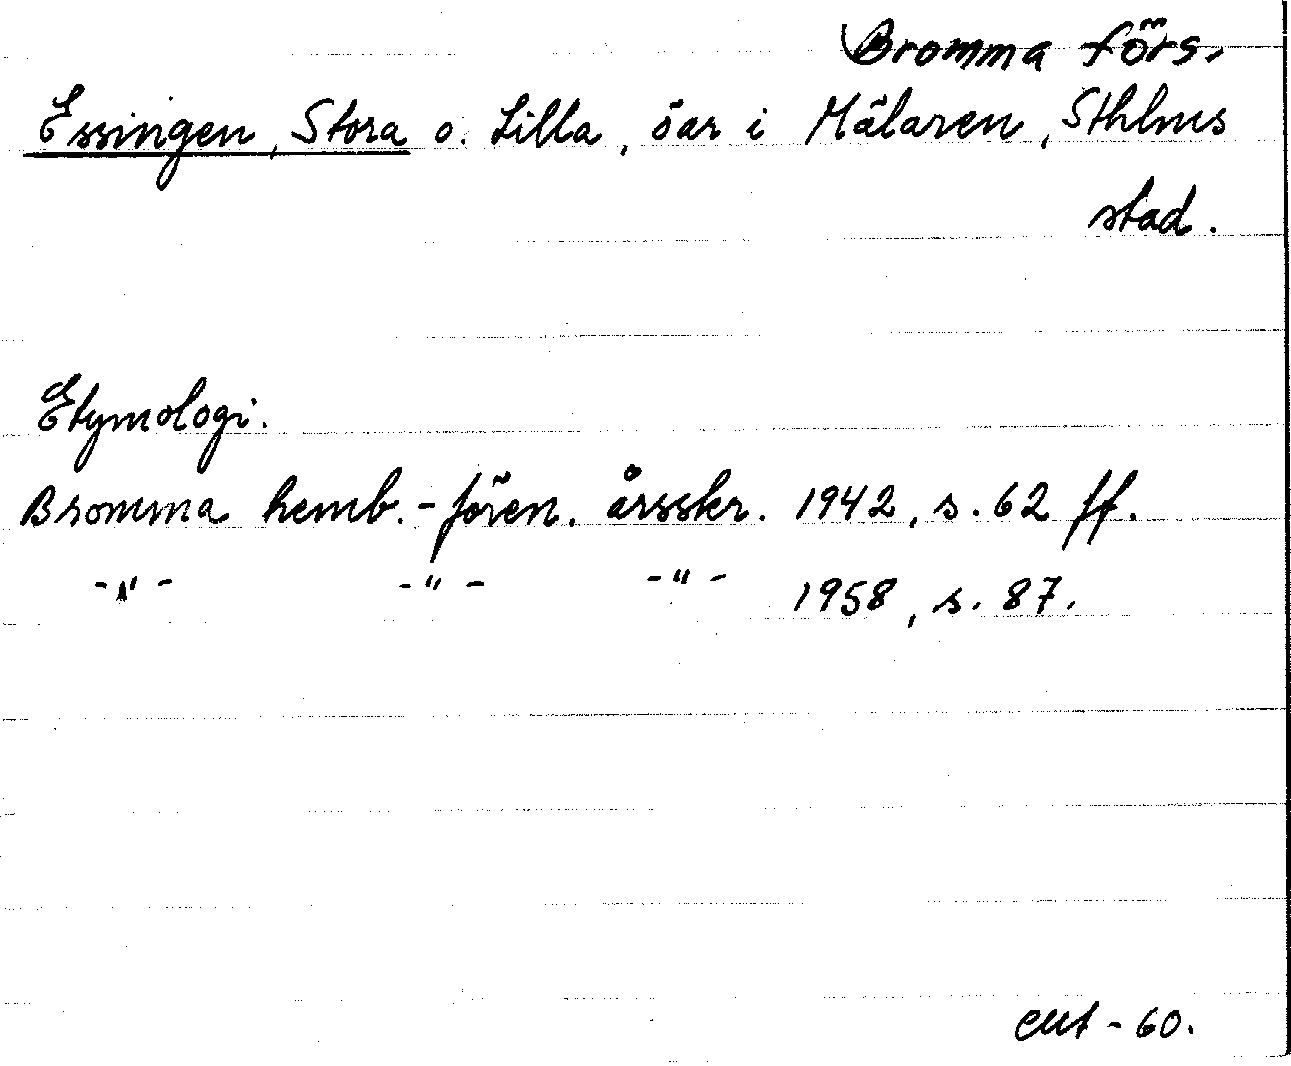 Bromma förs.
Essingen, Stora o. Lilla, öar i Mälaren, Sthlms
stad.
Etymologi.
Bromma hemb.-fören. årsskr. 1942, s. 62 ff.
-"- -"- -"- 1958, s. 87.
-60.